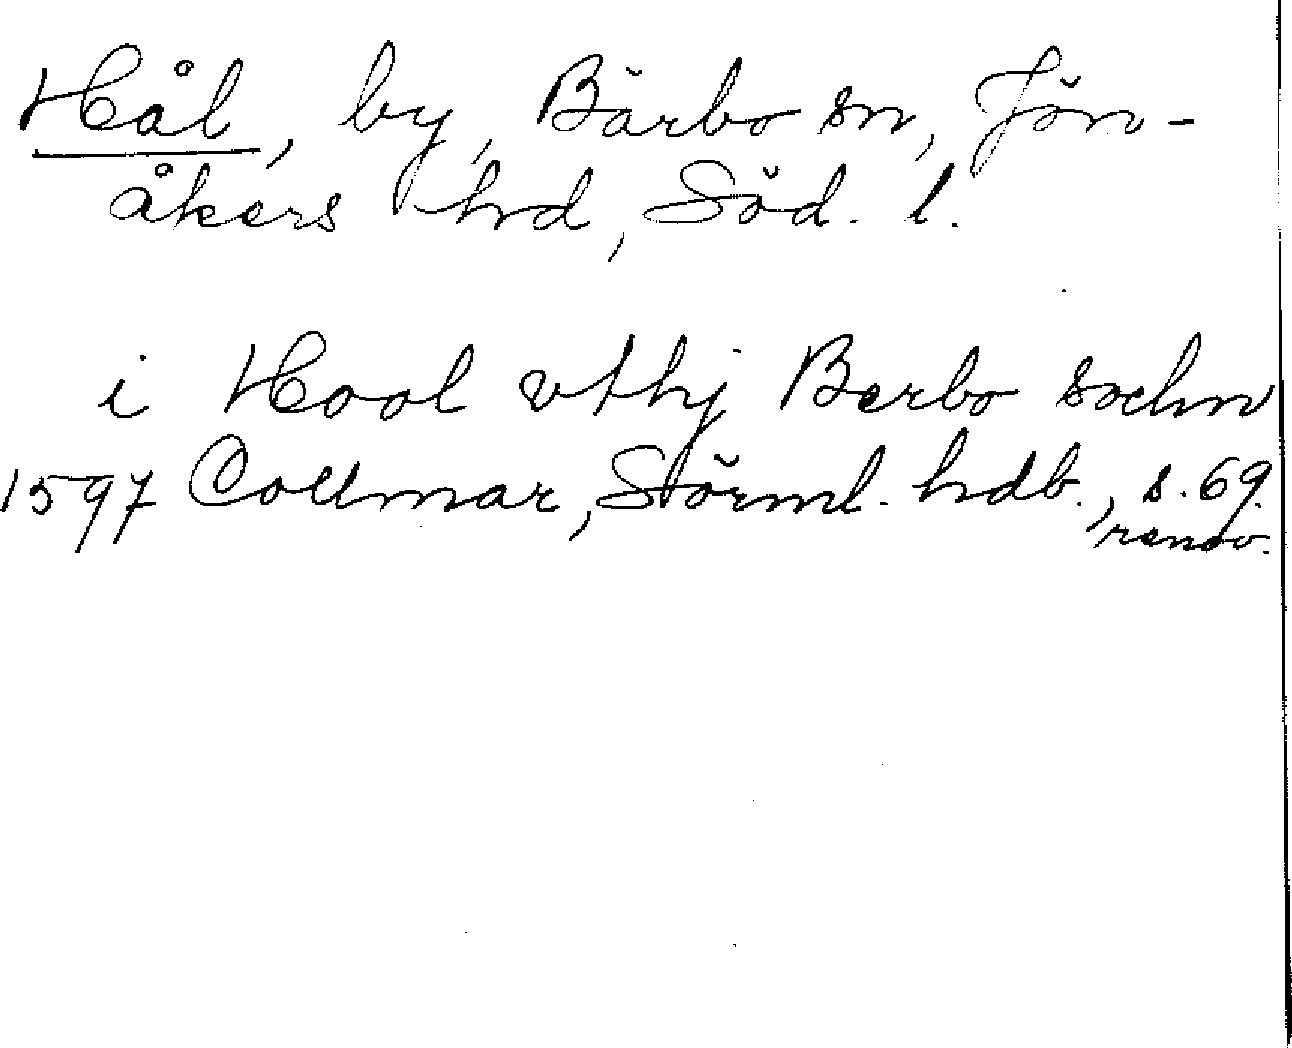 Hål, by, Bärbo sn, Jön-
åkers hd, Söd. l.
i Hool vthj Berbo sochn
1597 Collmar, Sörml. hdb., s. 69.
renov.